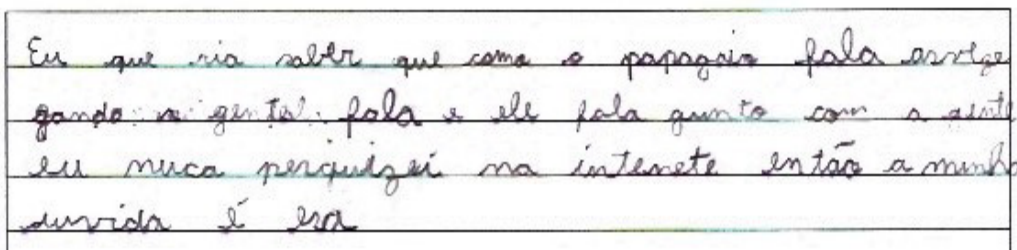 Eu que ria saber que como o papagaio fala asveze
gando a gente fala e ele fala gunto com a gente
eu nuca perquizei na intenete então a minha
duvida é esa